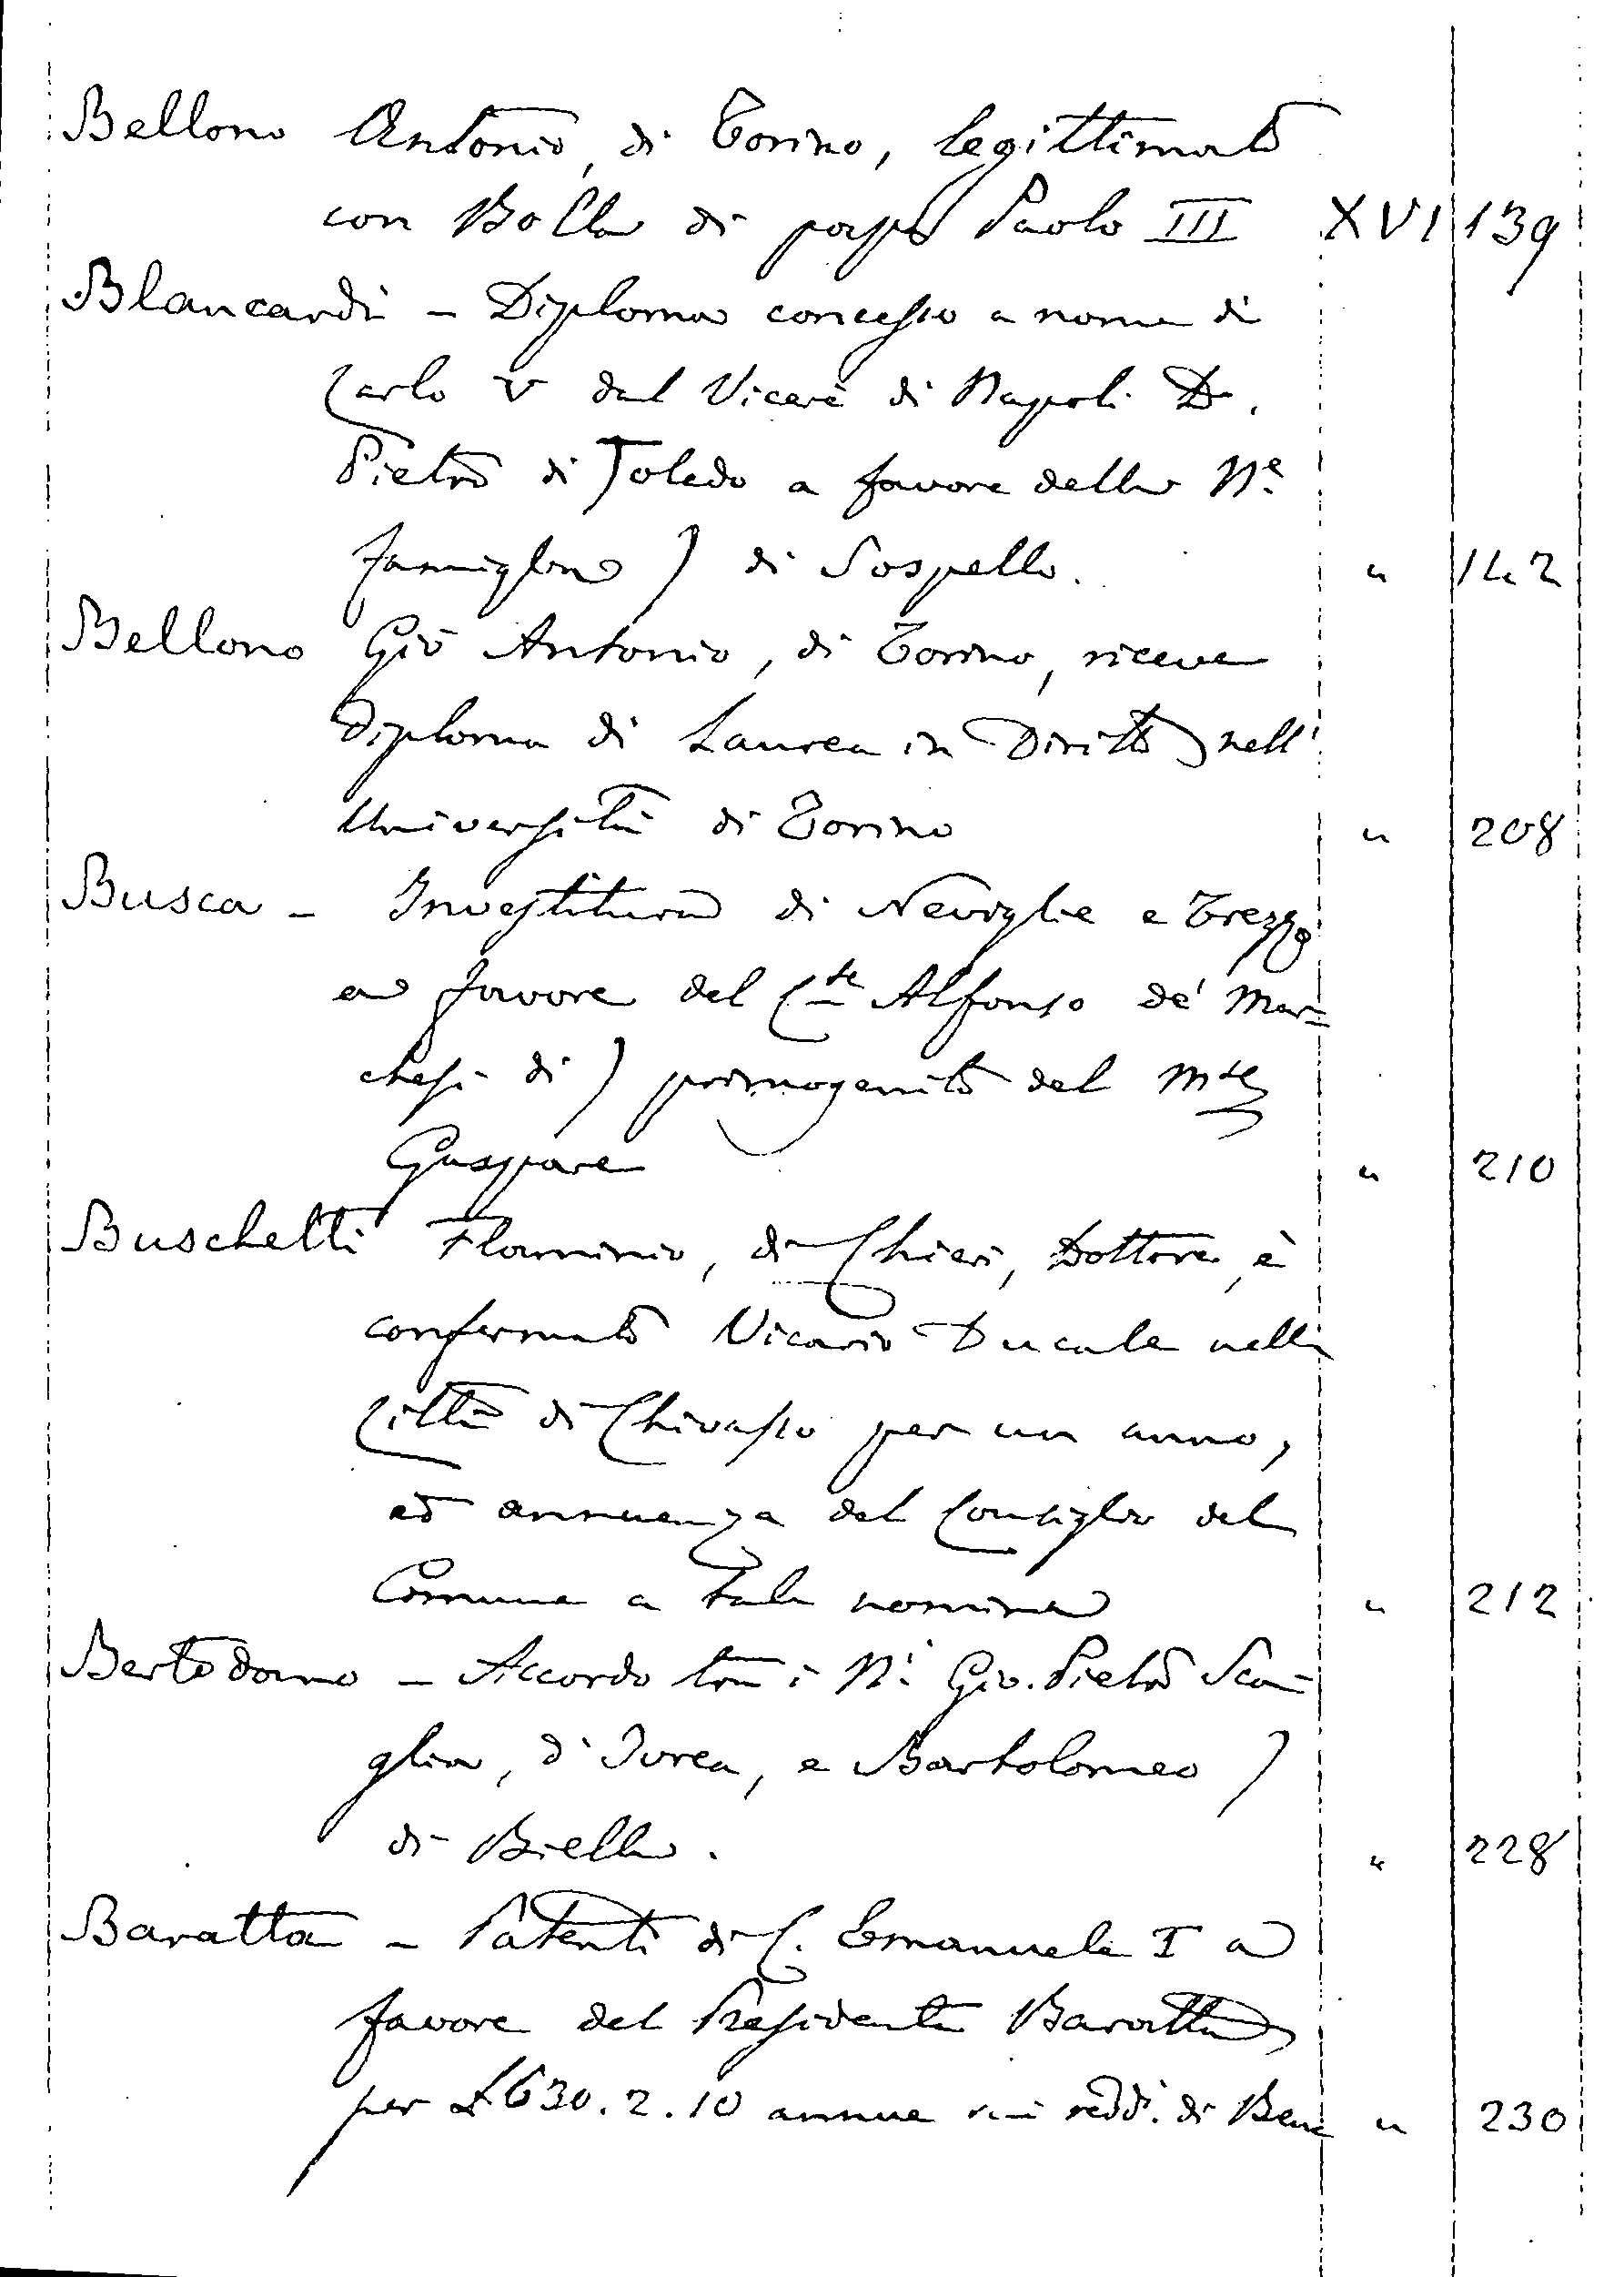 Bellono Antonio, di Torino, legittimato
con Bolla di papa Paolo III XVI 139
Blancardi - Diploma concesso a nome di
Carlo V dal Vicerè di Napoli D.
Pietro di Toledo a favore della N.e
famiglia ) di Sospello. " 142
Bellono Gio Antonio, di Torino, riceve
diploma di Laurea in Diritto nell'
Università di Torino " 208
Busca - Investitura di Neviglie e Trezzo
a favore del C.te Alfonso de' Mar=
chesi di ) primogenito del M.te
Gaspare " 210
Buschetti Flaminio, di Chieri, Dottore, è
confermato Vicario Ducale nella
Città di Chivasso per un anno,
ed annuenza del Consiglio del
Comune a tale nomina " 212
Bertodano - Accordo tra i N.i Gio. Pietro Sca-
glia, d'Ivrea, e Bartolomeo )
di Biella. " 228
Baratta - Patenti di C. Emanuele I a
favore del Presidente Baratta
per £ 630.2.10 annue sui redd.i di Bene " 230